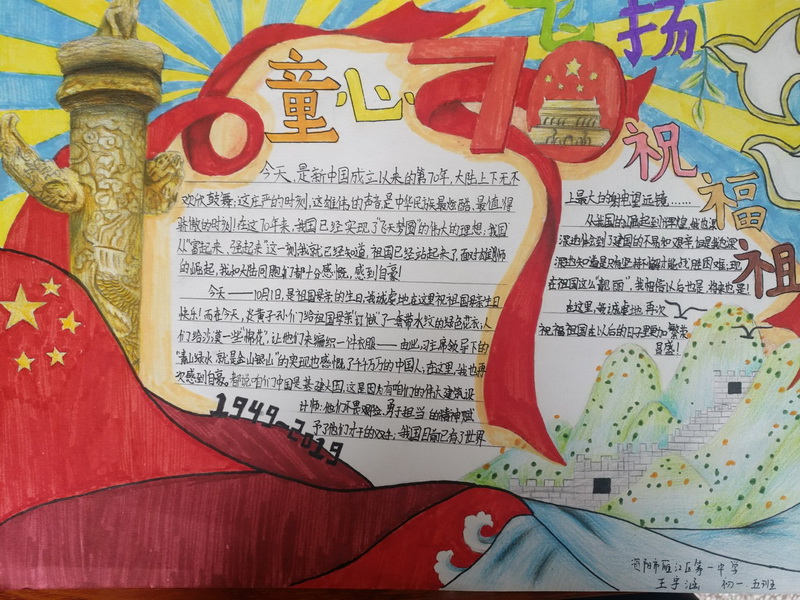 童心
70
飞扬
祝福祖
今天,是新中国成立以来的第70年,大陆上下无不
欢欣鼓舞;这庄严的时刻,这雄伟的声音是中华民族最炫酷、最值得
骄傲的时刻!在这70年来,我国已经实现了“飞天梦圆”的伟大的理想;我国
从“富起来、强起来”这一刻我就已经知道,祖国已经站起来了,面对雄狮
的崛起,我和大陆同胞们都十分感慨,感到自豪!
今天——10月1日,是祖国母亲的生日,我诚挚地在这里祝祖国母亲生日
快乐!而在今天,炎黄子孙们给祖国母亲“订做”了一套带水纹的绿色花衣;人
们给沙漠一些“棉花”,让他们来编织一件衣服——由此,习主席领导下的
“青山绿水就是金山银山”的实现也感慨了千千万万的中国人;在这里,我也再
次感到自豪。都说咱们中国是基建大国,这是因为有咱们的伟大建筑设
计师;他们不畏艰险、勇于担当的精神赋
予了他们才干的双手;我国目前已有了世界
上最大的射电望远镜……
从我国的崛起到辉煌,我也深
深体会到了建国的不易和艰辛;但是我也深
深知道只有坚持和
在祖国这么“靓丽”,我相信以后也是 将来也是!
在这里,我诚挚地 再次
祝福祖国在以后的日子里更加繁荣
昌盛!
1949-2019
资阳市雁江区第一中学
王宇涵 初一.五班